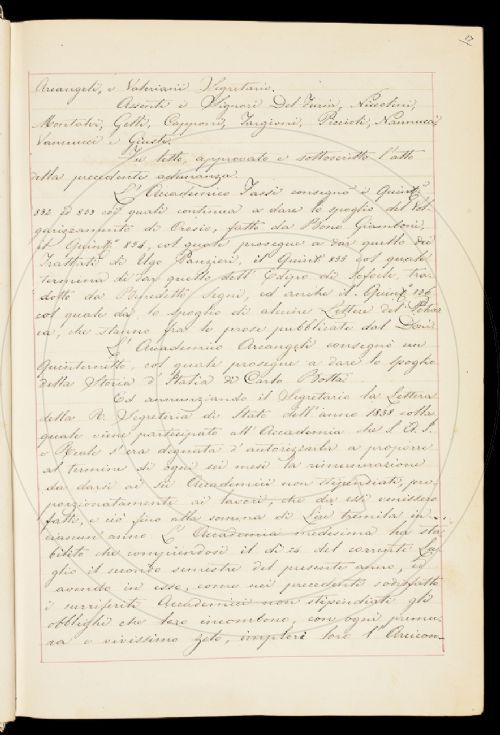 17
Arcangeli, e Valeriani Segretario.
Assenti i Signori Del Furia, Niccolini,
Montalvi, Gelli, Capponi, Targioni, Piccioli, Nannucci
Vannucci e Giusti.
Fu letto, approvato e sottoscritto l'atto
della precedente adunanza.
L'Accademico Tassi consegnò i Quint.ⁱ
832 ed 833 coi quali continua a dare lo spoglio del Vol
garizzamento di Orosio, fatto da Bono Giamboni,
il Quint.º 834, col quale prosegue a dar quello dei
Trattati di Ugo Panzieri, il Quint.º 835 col quale
termina di dar quello dell'Edipo di Sofocle, tra
dotto da Bernardo Segni, ed anche il Quint.º 836
col quale dà lo spoglio di alcune Lettere del
che stanno fra le prose pubblicate dal
L'Accademico Arcangeli consegnò un
Quinternetto, col quale prosegue a dare lo spoglio
della Storia d'Italia di Carlo Botta.
Ed annunziando il Segretario la Lettera
della R. Segreteria di Stato dell'anno 1838 colla
quale viene partecipato all'Accademia che S. A. I.
e Reale s'era degnata d'autorizzarla a proporre
al termine di ogni sei mesi la rimunerazione
da darsi ai Sei Accademici non stipendiati, pro-
porzionatamente ai lavori, che da essi venissero
fatti, e ciò fino alla somma di Lire tremila in
ciascun anno. L'Accademia medesima ha sta-
bilito che compiendosi il dì 24 del corrente Lu-
glio il secondo semestre del presente anno, ed
avendo in esso, come nei precedenti sodisfatto
i surriferiti Accademici non stipendiati gli
obblighi che loro incombono, con ogni premu-
ra e vivissimo zelo, implori loro l'Arcicom-